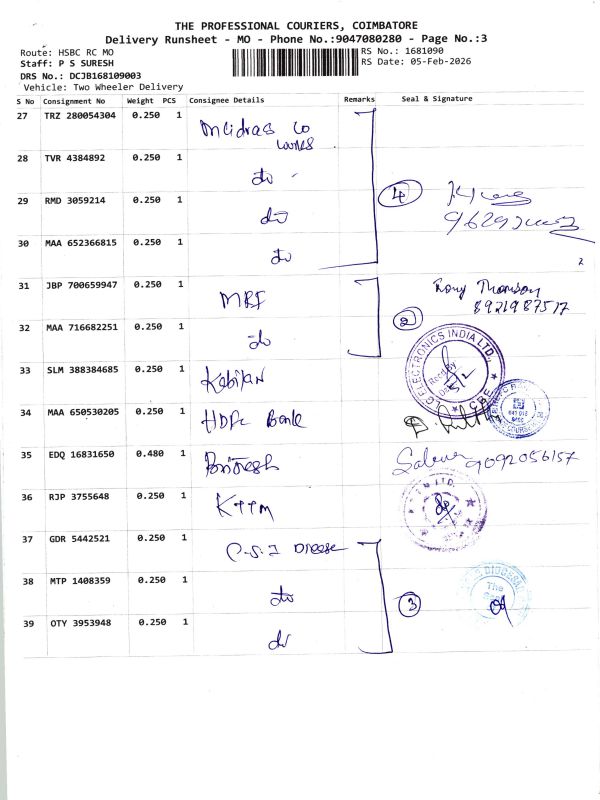 THE PROFESSIONAL COURIERS, COIMBATORE
Delivery Runsheet - MO - Phone No.:9047080280 - Page No.:3
Route: HSBC RC MO
RS No.: 1681090
Staff: P S SURESH
RS Date: 05-Feb-2026
DRS No.: DCJB168109003
Vehicle: Two Wheeler Delivery
S No Consignment No Weight PCS Consignee Details Remarks Seal & Signature
27 TRZ 280054304 0.250 1
28 TVR 4384892 0.250 1 do
29 RMD 3059214 0.250 1 do 4
30 MAA 652366815 0.250 1 do
31 JBP 700659947 0.250 1 MRF Rony Thomson
8921987517
32 MAA 716682251 0.250 1 do 2
LG ELECTRONICS INDIA LTD., CBE
33 SLM 388384685 0.250 1 Kabilan
34 MAA 650530205 0.250 1 HDFC Bank
35 EDQ 16831650 0.480 1 9092056157
36 RJP 3755648 0.250 1 KTTM
37 GDR 5442521 0.250 1 C.S.I
38 MTP 1408359 0.250 1 do 3
39 OTY 3953948 0.250 1 do